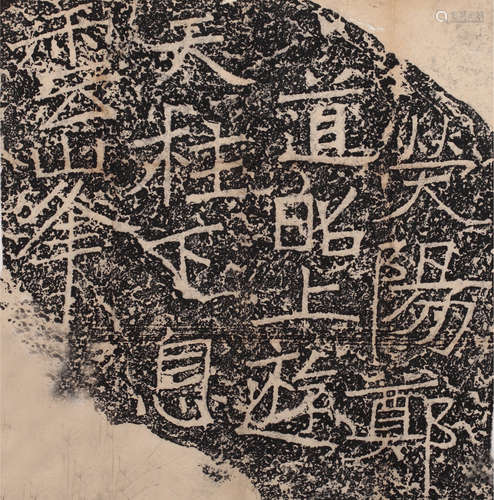 熒陽鄭
道昭上遊
天柱下息
雲峯